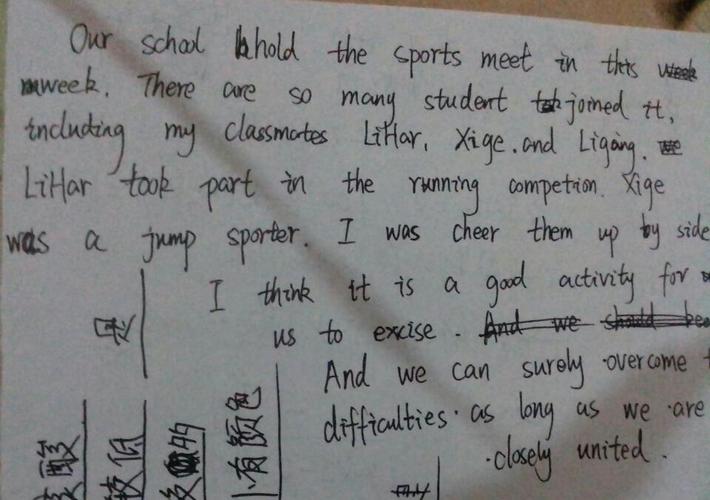 Our school hold the sports meet in this
week. There are so many student joined it,
including my classmates LiHar, Xige. and Ligang.
LiHar took part in the running competion. Xige
was a jump sporter. I was cheer them up by side
I think it is a good activity for
us to excise.
And we can surely overcome
difficulties as long as we are
closely united.
有颜色